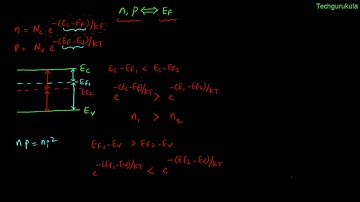 Techgurukula
n, p ⟺ E_F
n = N_c e^{-(E_c-E_F)/kT}
p = N_v e^{-(E_F-E_v)/kT}
E_c
E_F1
E_F2
E_v
E_c-E_F1 < E_c-E_F2
e^{-(E_c-E_F1)/kT} > e^{-(E_c-E_F2)/kT}
n_1 > n_2
np = n_i^2
E_F1-E_v > E_F2-E_v
e^{-(E_F1-E_v)/kT} < e^{-(E_F2-E_v)/kT}